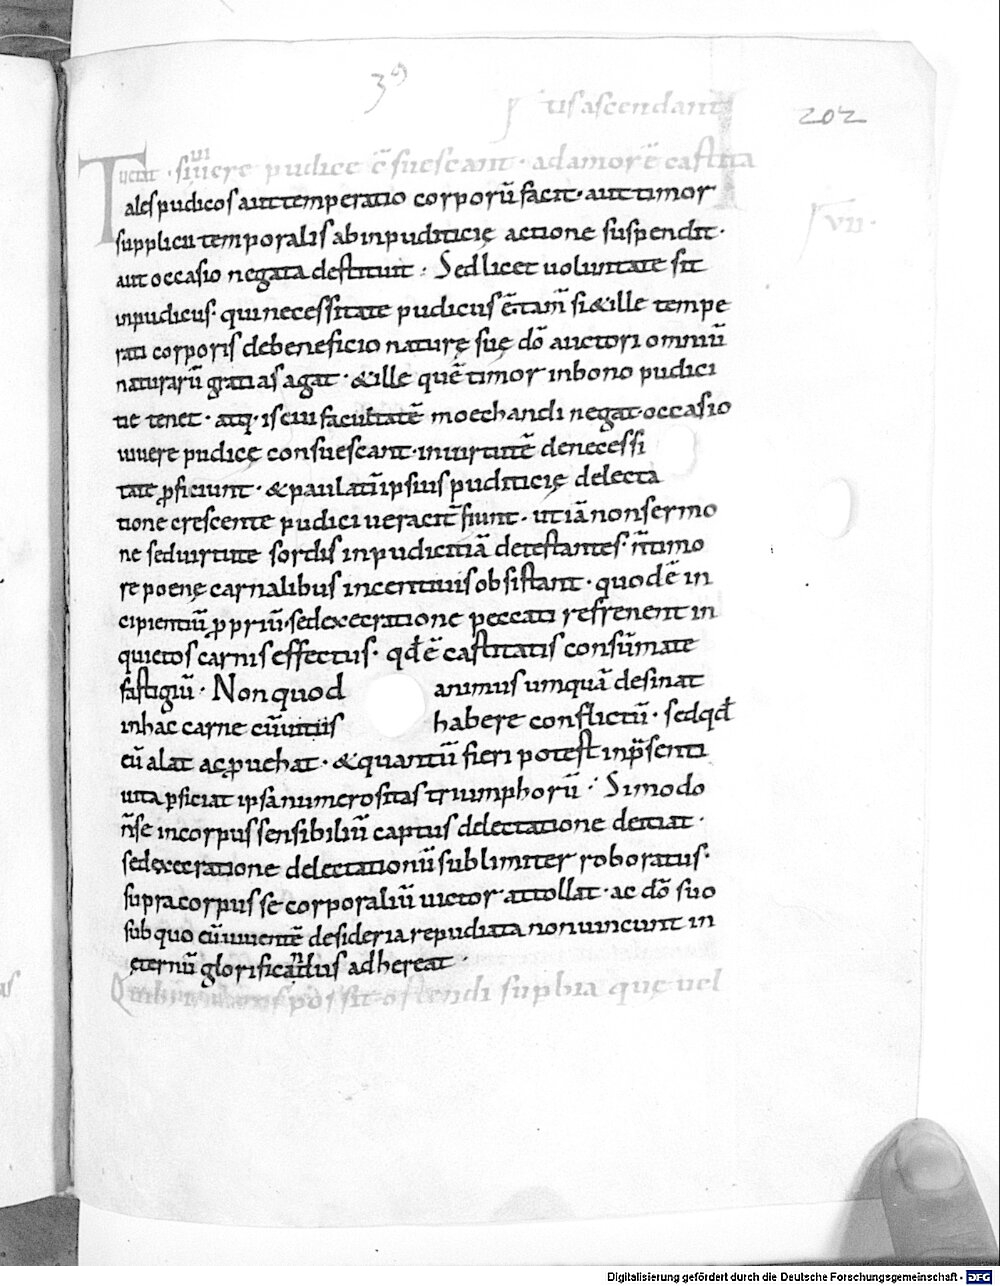 39
us ascendant
202
viuere pudice c̄suescant · ad amorē castita
Tales pudicos aut temperatio corporū facit · aut timor
vii ·
supplicii temporalis ab inpuditicię actione suspendit ·
aut occasio negata destituit : Sed licet uoluntate sit
inpudicus · qui necessitate pudicus ē · tam̄ si & ille tempe
rati corporis de beneficio naturę suę dō auctori omniū
naturarū gratias agat · & ille quē timor in bono pudici
tie tenet · atq · is cui facultatē moechandi negat occasio
uiuere pudicę consuescant · in uirtutē de necessi
tate ꝓficiunt · & paulatī ipsius puditicię delecta
tione crescente pudici ueracit̄ fiunt · ut iā non sermo
ne sed uirtute sordis inpudicitiā detestantes · n̄ timo
re poenę carnalibus incentiuis obsistant · quod ē in
cipientiū ꝓpriū · sed execratione peccati refrenent in
quietos carnis effectus · qđ ē castitatis consūmate
fastigiū · Non quod animus umquā desinat
in hac carne cū uitiis habere conflictū · sed qđ
eū alat ac ꝓuehat · & quantū fieri potest in p̄senti
uita ꝑficiat ipsa numerositas triumphorū · Si modo
n̄ se in corpus sensibiliū captus delectatione deiciat ·
sed execratione delectationū sublimiter roboratus ·
supra corpus se corporaliū uictor attollat · ac dō suo
sub quo eū uiuentē desideria repudiata non uincunt in
ęternū glorificandus adhereat ·
possit ostendi supbia quę uel